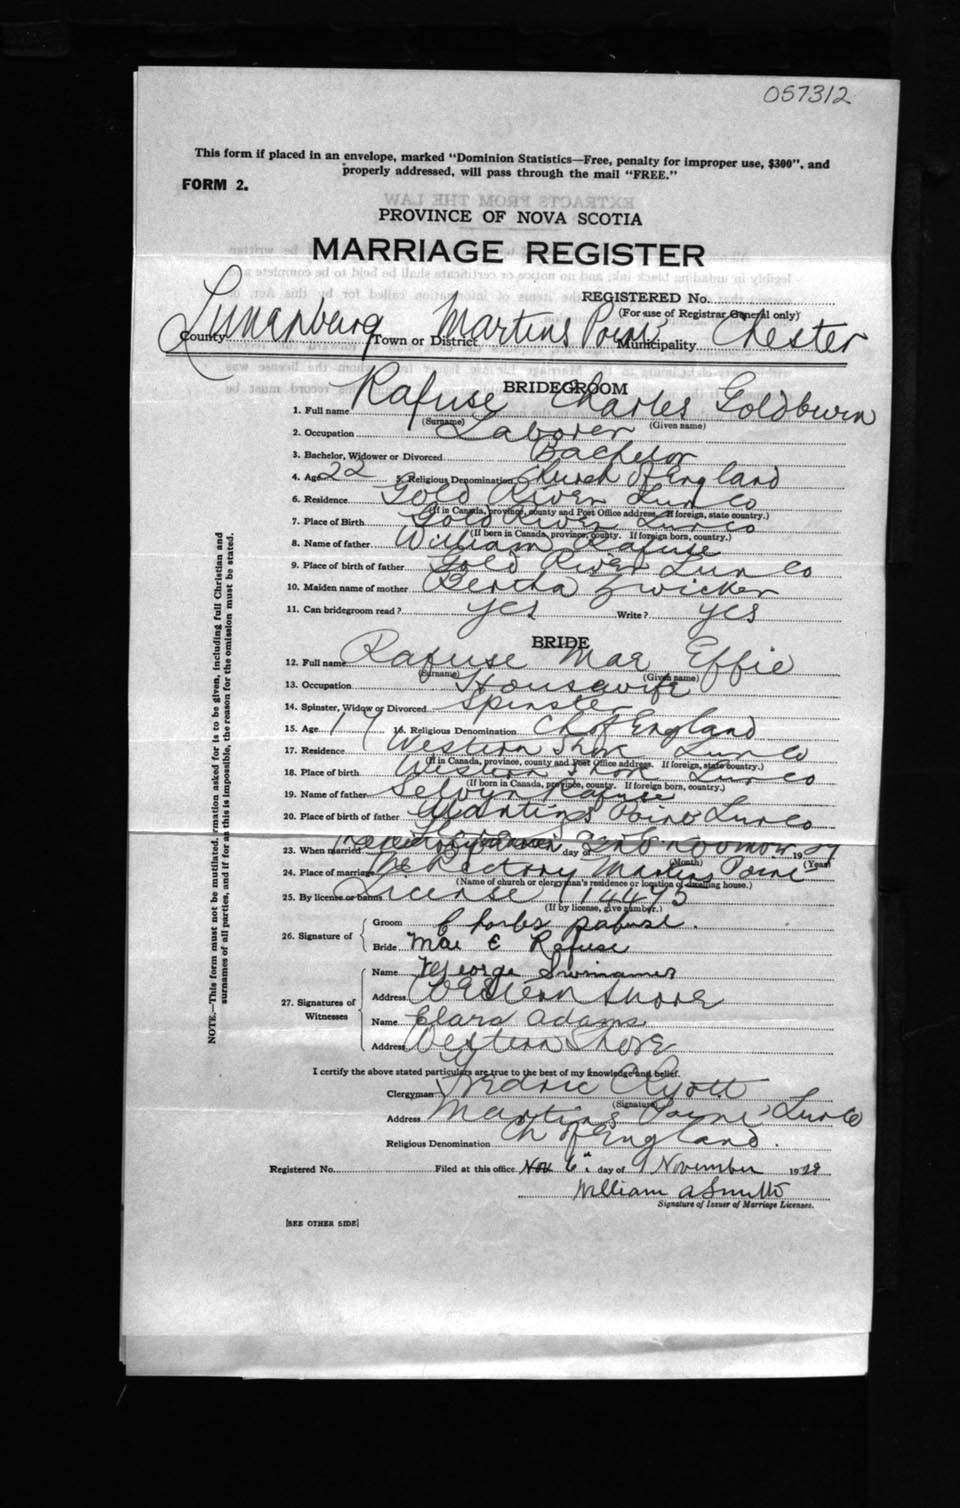 057312
This form if placed in an envelope, marked "Dominion Statistics—Free, penalty for improper use, $300", and
properly addressed, will pass through the mail "FREE."
FORM 2.
PROVINCE OF NOVA SCOTIA
MARRIAGE REGISTER
REGISTERED No.
(For use of Registrar General only)
County Lunenburg Town or District Martins Point Municipality Chester
BRIDEGROOM
1. Full name Rafuse Charles Goldburn
(Surname) (Given name)
2. Occupation Laborer
3. Bachelor, Widower or Divorced Bachelor
4. Age 22 5. Religious Denomination Church of England
6. Residence Gold River Lun Co
(If in Canada, province, county and Post Office address. If foreign, state country.)
7. Place of Birth Gold River Lun Co
(If born in Canada, province, county. If foreign born, country.)
8. Name of father William Rafuse
9. Place of birth of father Gold River Lun Co
10. Maiden name of mother Bertha Zwicker
11. Can bridegroom read? yes Write? yes
BRIDE
12. Full name Rafuse Mae Effie
(Surname) (Given name)
13. Occupation Housewife
14. Spinster, Widow or Divorced Spinster
15. Age 17 16. Religious Denomination Ch of England
17. Residence Western Shore Lun Co
(If in Canada, province, county and Post Office address. If foreign, state country.)
18. Place of birth Western Shore Lun Co
(If born in Canada, province, county. If foreign born, country.)
19. Name of father Selvyn Rafuse
20. Place of birth of father Martins Point Lun Co
23. When married day of 19
(Month) (Year)
24. Place of marriage The Rectory Martins Point
(Name of church or clergyman's residence or location of dwelling house.)
25. By license or banns License
(If by license, give number.)
26. Signature of Groom Charles Rafuse.
Bride Mae E Rafuse
27. Signatures of Witnesses Name George Swinamer
Address Western Shore
Name Clara Adams
Address Western Shore
I certify the above stated particulars are true to the best of my knowledge and belief.
Clergyman Fredric Clyott
(Signature)
Address Martins Point Lun Co
Religious Denomination Ch of England.
Registered No. Filed at this office Nov 6 day of November 19
William A Smith
Signature of Issuer of Marriage Licenses.
[SEE OTHER SIDE]
NOTE.—This form must not be mutilated. rmation asked for is to be given, including full Christian and
surnames of all parties, and if for as this is impossible, the reason for the omission must be stated.